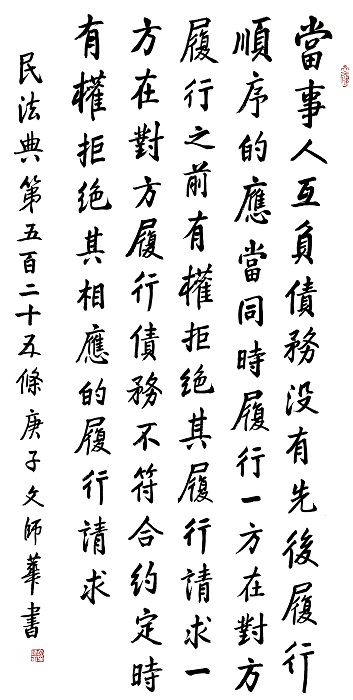 當事人互負債務没有先後履行
順序的應當同時履行一方在對方
履行之前有權拒绝其履行請求一
方在對方履行債務不符合约定時
有權拒绝其相應的履行請求
民法典第五百二十五條庚子文師華書